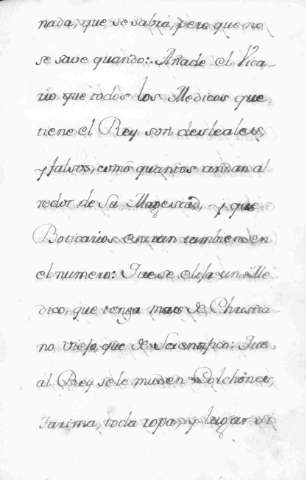 nada, que se sabra, pero que no
se save quando: Añade el Vica-
rio que todos los Medicos que
tiene el Rey son desleales,
y falsos, como quantos andan al
redor de Su Magestad, y que
Boticarios entran tambien en
el numero: Que se elija un Me
dico, que tenga mas de Christia
no Viejo que de Scientifico: Que
al Rey se le muden Colchones,
Tarima, toda ropa, y lugar de